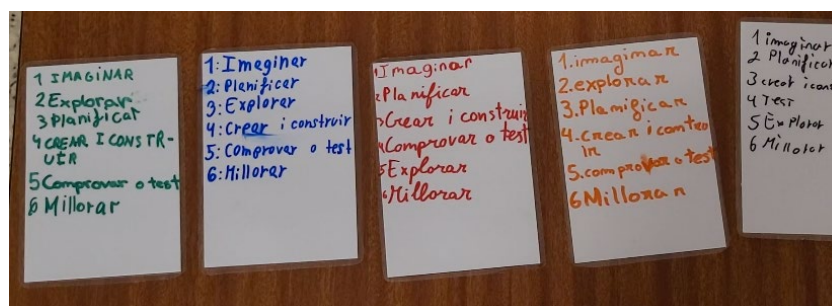 1 IMAGINAR
2 Explorar
3 Planificar
4 CREAR I CONSTR-
UÏR
5 Comprovar o test
6 Millorar
1: Imaginar
2: Planificar
3: Explorar
4: Crear i construir
5: Comprovar o test
6: Millorar
1 Imaginar
2 Planificar
3 Crear i construir
4 Comprovar o test
5 Explorar
6 Millorar
1. immaginar
2. explorar
3. Plamificar
4. crear i contro
ir
5. comprovar o test
6 Milloran
1 imaginar
2 Planificar
3 creat i cons
4 Test
5 Explorar
6 Millorar